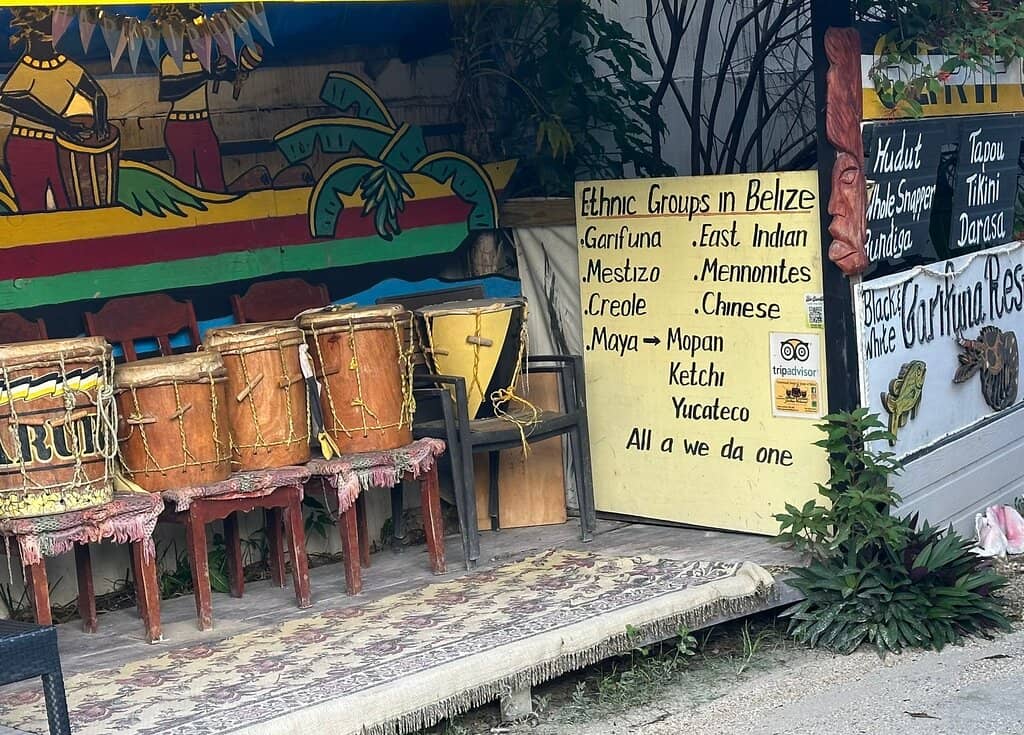 Ethnic Groups in Belize
.Garifuna .East Indian
.Mestizo .Mennonites
.Creole .Chinese
.Maya → Mopan
Ketchi
Yucateco
All a we da one
tripadvisor
Hudut
Whale Snapper
Bundiga
Tapou
Tikini
Darasa
Black &
White
Garifuna Res